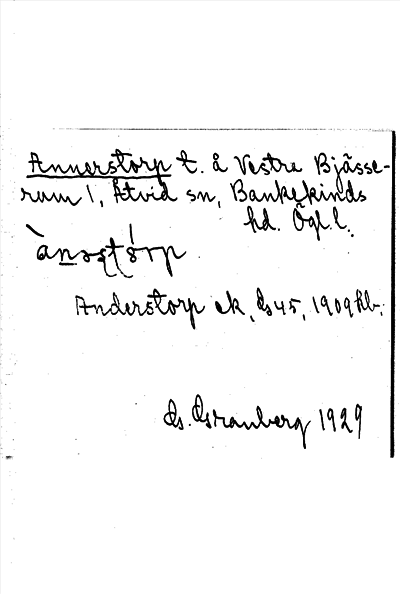 Annerstorp t. å Vestra Bjässe-
rum 1, Åtvid sn, Bankekinds
hd. Ögl. l.
Anderstorp ek, GS 45, 1909 kb.
G. Granberg 1929